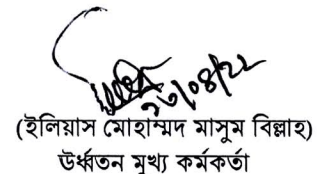 ২৩/০৪/২২
(ইলিয়াস মোহাম্মদ মাসুম বিল্লাহ)
উর্ধ্বতন মুখ্য কর্মকর্তা